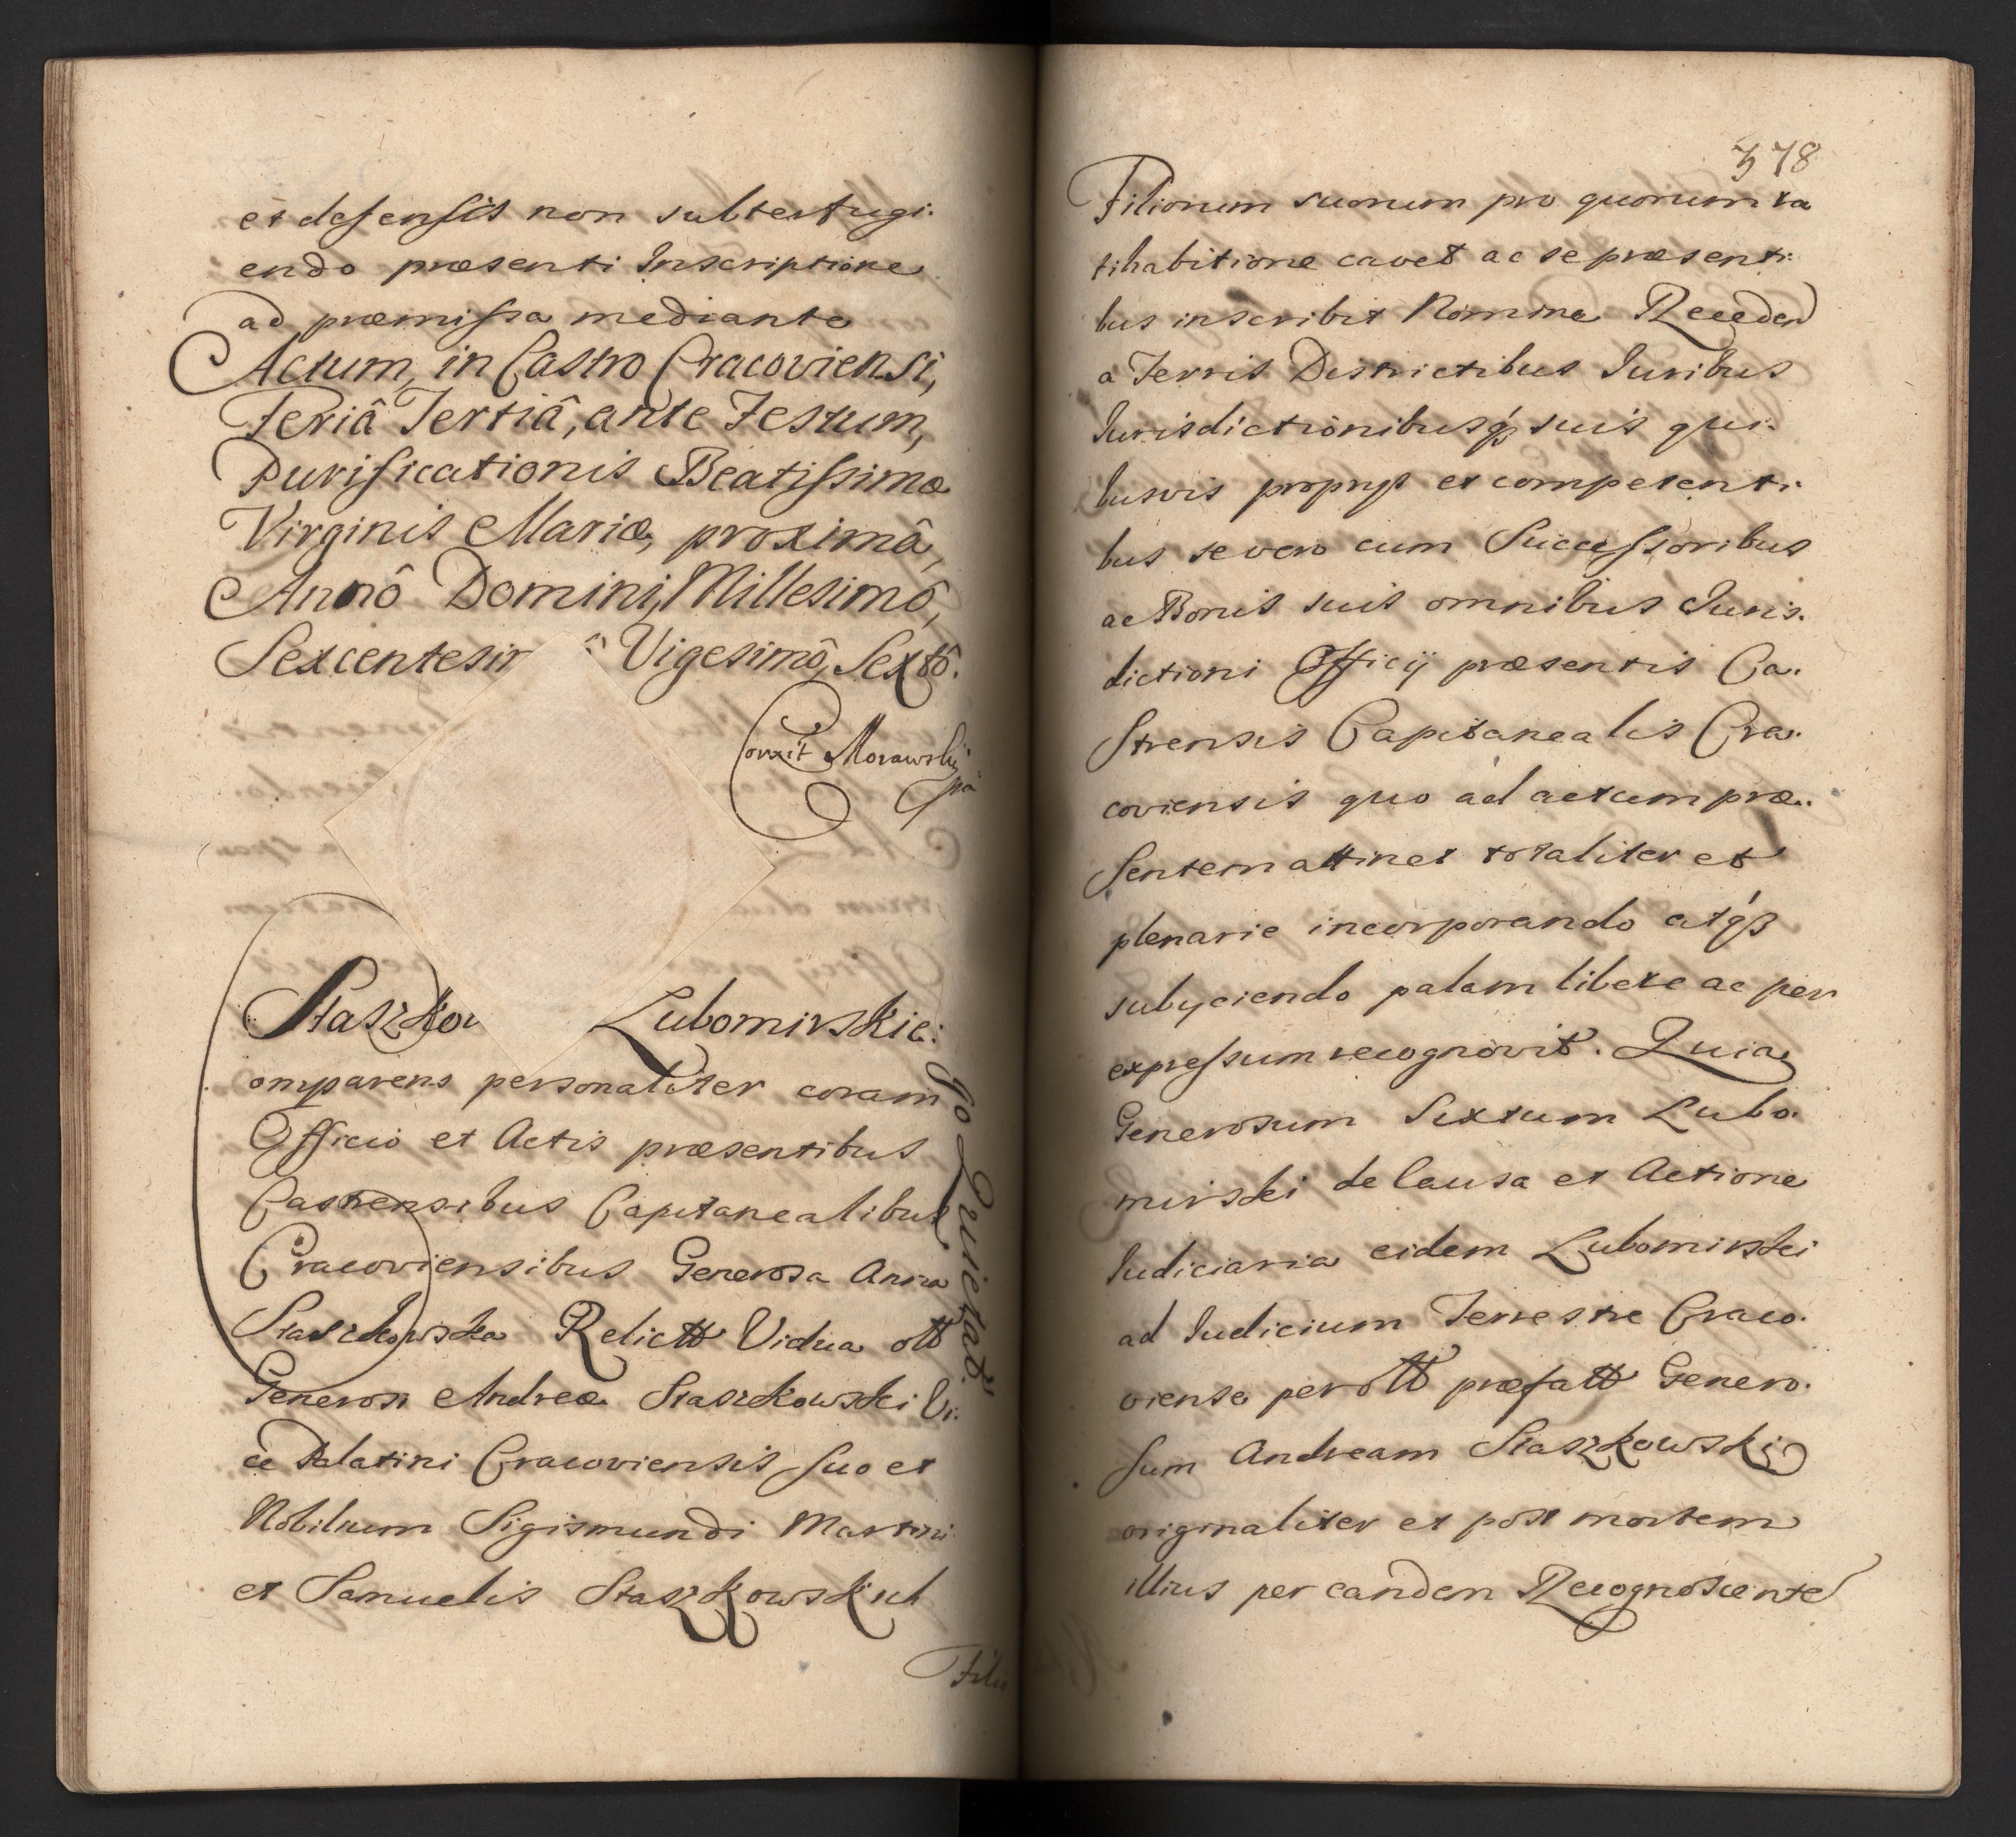 et defensis non subterfugi-
endo præsenti Inscriptione
ad præmissa mediante
Actum, in Castro Cracoviensi,
Feriâ Tertiâ, ante Festum,
Purificationis Beatissimæ
Virginis Mariæ, proximâ,
Annô Domini, Millesimô,
Sexcentesim Vigesimô, Sextô.
Corxit Morawski
Staszkow Lubomirskie:
go Quietat
omparens personaliter coram
Officio et Actis præsentibus
Castrensibus Capitanealibus
Cracoviensibus Generosa Anna
Staszkowska Relictt Vidua ott
Generosi Andreæ Staszkowski Vi-
ce Palatini Cracoviensis suo et
Nobilium Sigismundi Martini
et Samuelis Staszkowskich
Filio
378
Filiorum suorum pro quorum ra
tihabitione cavet ac se præsenti-
bus inscribit Nomine Receden
a Terris Districtibus Iuribus
Iurisdictionibusq́ suis qui-
busvis proprys et competenti-
bus se vero cum Successoribus
ac Bonis suis omnibus Iuris-
dictioni Officij præsentis Ca-
strensis Capitanealis Cra-
coviensis quo ad actum præ-
sentem attinet totaliter et
plenarie incorporando atq́
subyciendo palam libere ac per
expressum recognovit. Quia
Generosum Sixtum Lubo-
mirski de Causa et Actione
Iudiciaria eidem Lubomirski
ad Iudicium Terrestre Craco-
viense per ott præfatt Genero-
sum Andream Staszkowski
originaliter et post mortem
illius per eandem Recognoscente